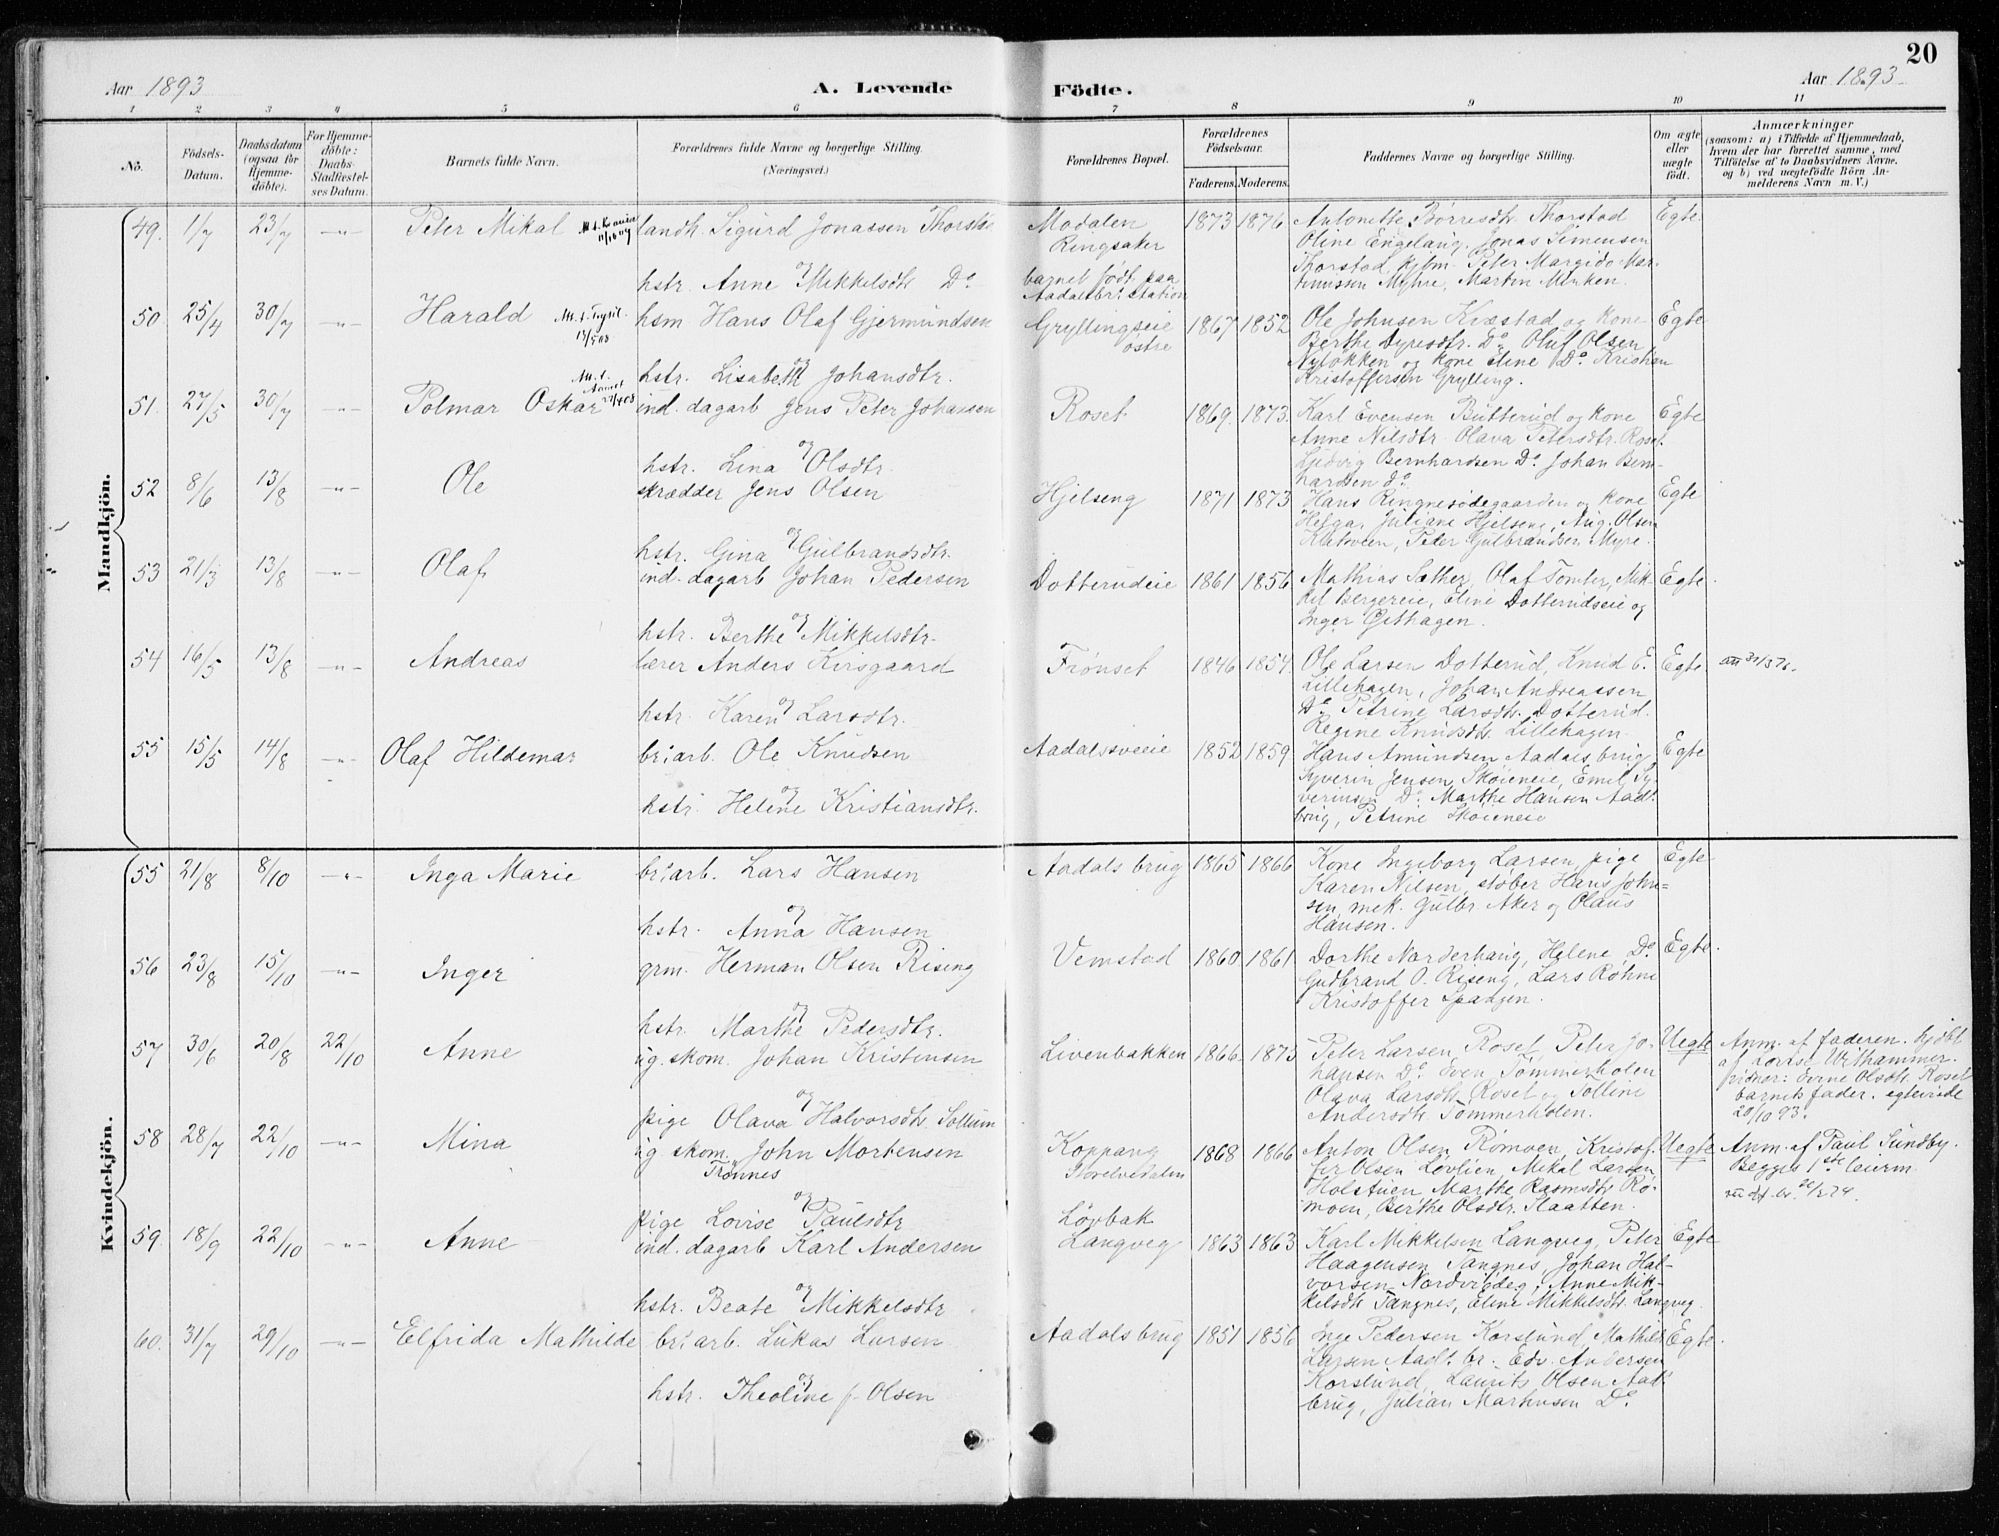 20
Aar 1893
A. Levende
Födte.
Aar 1893
1 2 3 4 5 6 7 8 9 10 11
No.
Födsels-Datum.
Daabsdatum (ogsaa for Hjemme-döbte).
For Hjemme-döbte: Daabs-Stadfæstel-ses Datum.
Barnets fulde Navn.
Forældrenes fulde Navne og borgerlige Stilling.
(Næringsvei.)
Forældrenes Bopæl.
Forældrenes Födselsaar.
Faderens. Moderens.
Faddernes Navne og borgerlige Stilling.
Om ægte eller uægte födt.
Anmærkninger
(saasom: a) i Tilfælde af Hjemmedaab,
hvem der har forrettet samme, med
Tilföielse af to Daabsvidners Navne.
og b) ved uægtefödte Börn An-
melderens Navn m. V.)
Mandkjön.
49. 1/7 23/7 -"- Peter Mikal
landh. Sigurd Jonassen Thorstad
og
hstr. Anne Mikkelsdtr. Do
Modalen
Ringsaker
barnet født paa
Aadalsbr. station
1873 1876
Antonette Børresdtr. Thorstad
Oline Engelaug, Jonas Simensen
Thorstad, kjbm. Peter Margido Mar-
tinussen Myhre, Martin Minken.
Egte
50. 25/4 30/7 -"- Harald
hsm. Hans Olaf Gjermundsen
og
hstr. Lisabeth Johansdtr.
Gryllingseie
østre
1867 1852
Ole Johnsen Kvæstad og kone
Berthe Dyresdtr. Do, Oluf Olsen
Nyløkken og kone Eline Do Kristian
Kristoffersen Grylling.
Egte
51. 27/5 30/7 -"- Polmar Oskar
ind. dagarb Jens Peter Johansen
og
hstr. Lina Olsdtr.
Roset
1869. 1873.
Karl Evensen Butterud og kone
Anne Nilsdtr. Olava Petersdtr. Roset.
Ludvig Bernhardsen Do. Johan Bern-
hardsen do.
Egte
52 8/6 13/8 -"- Ole
skrædder Jens Olsen
og
hstr. Gina Gulbrandsdtr.
Hjelseng
1871 1873
Hans Ringnesødegaarden og kone
Helga, Juliane Hjelseng, Aug. Olsen
Klatveen, Peder Gulbrandsen Myre.
Egte
53 21/3 13/8 -"- Olaf
ind. dagarb Johan Pedersen
og
hstr. Berthe Mikkelsdtr.
Dotterudeie
1861 1856
Mathias Sæther, Olaf Tomter, Mik-
kel Bergereie, Eline Dotterudseie og
Inger Gethagen.
Egte
54 16/5 13/8 -"- Andreas
lærer Anders Kirsgaard
og
hstr. Karen Larsdtr.
Frønset
1846 1854.
Ole Larsen Dotterud, Knud E.
Lillehagen, Johan Andreassen
Do, Petrine Larsdtr. Dotterud.
Regine Knudsdtr. Lillehagen.
Egte
55 15/5 14/8 -"- Olaf Hildemar
br: arb. Ole Knudsen
og
hstr. Helene Kristiansdtr.
Aadalssveie
1852 1859
Hans Amundsen Aadals brug,
Syverin Jensen Skøieneie, Emil Sy-
verinsen Do. Marthe Hansen Aadl.
brug, Petrine Skøieneie
Egte
Kvindekjön.
55 21/8 8/10 -"- Inga Marie
br: arb. Lars Hansen
og
hstr. Anna Hansen
Aadals brug
1865 1866
Kone Ingeborg Larsen, pige
Karen Nilsen, støber Hans John-
sen, mek. Gulbr. Aker og Olaus
Hansen.
Egte
56 23/8 15/10 -"- Inger
grm. Herman Olsen Riseng
og
hstr. Marthe Pedersdtr.
Vemstad
1860 1861
Dorthe Norderhaug, Helene Do
Gudbrand O. Riseng, Lars Røhne
Kristoffer Spangen.
Egte.
57 30/6 20/8 22/10 Anne
ug. skom. Johan Kristensen
og
pige Olava Halvorsdtr. Sollum
Livenbakken
1866. 1873
Peter Larsen Roset, Peter Jo-
hansen Do. Even Tømmerholen
Olava Larsdtr. Roset ogOlline
Andersdtr. Tømmerholen.
Uegte
Anm. af faderen. hjdbt
af Lovise Withammer.
vidner: Evine Olsdtr. Roset
barnets fader. egteviede
20/10 93.
58 28/7 22/10 -"- Mina
ug. skom. John Mortensen
Trønnes
og
pige Lovise Paulsdtr
Koppang
Storelvedalen
Løvbak
1868 1866
Anton Olsen Rømoen, Kristof-
fer Olsen Løvlien, Mikal Larsen
Holstuen, Marthe Rasmsdtr. Rø-
moen, Berthe Olsdtr. Slaatten.
Uegte
Anm. af Paul Sundby.
Begges 1ste leierm.
59. 18/9 22/10 -"- Anne
ind. dagarb Karl Andersen
og
hstr. Beate Mikkelsdtr
Langveg
1863 1863
Karl Mikkelsen Langveg, Peter
Haagensen Tangnes, Johan Hal-
vorsen Nordvigdeg, Anne Mik-
kelsdtr. Tangnes, Eline Mikkelsdtr. Langveg.
Egte
60. 31/7 29/10 -"- Elfrida Mathilde
br: arb. Lukas Larsen
og
hstr. Theoline f. Olsen
Aadals brug
1851 1856
Inge Pedersen Korslund, Mathild
Larsen Aadl. br. Edv. Andersen
Korslund, Laurits Olsen Aad.
brug, Julian Martinsen Do.
Egte.